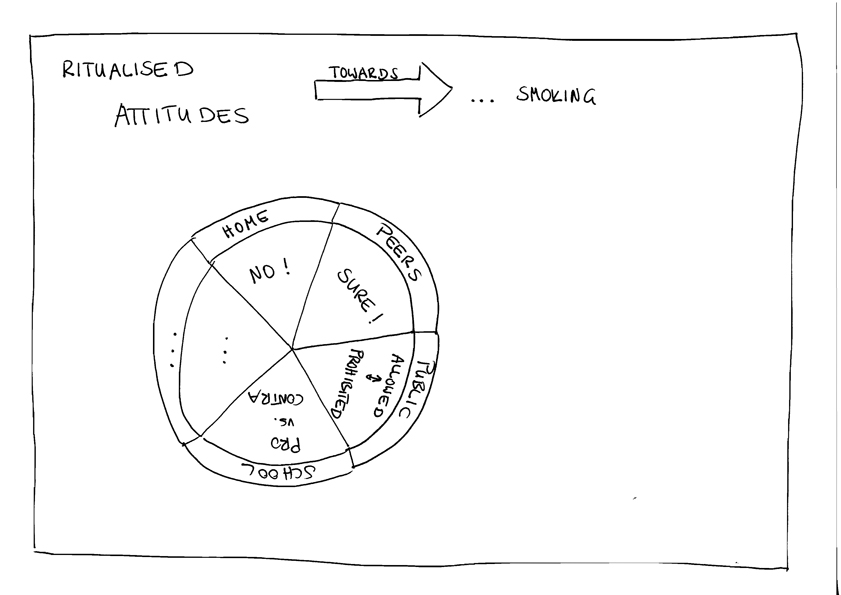 RITUALISED
ATTITUDES
TOWARDS
... SMOKING
HOME
NO!
PEERS
SURE!
PUBLIC
ALLOWED
↕
PROHIBITED
SCHOOL
PRO
VS.
CONTRA
...
...